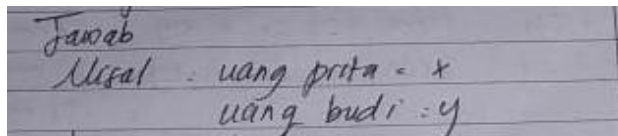 Jawab
Misal : uang prita = x
uang budi : y